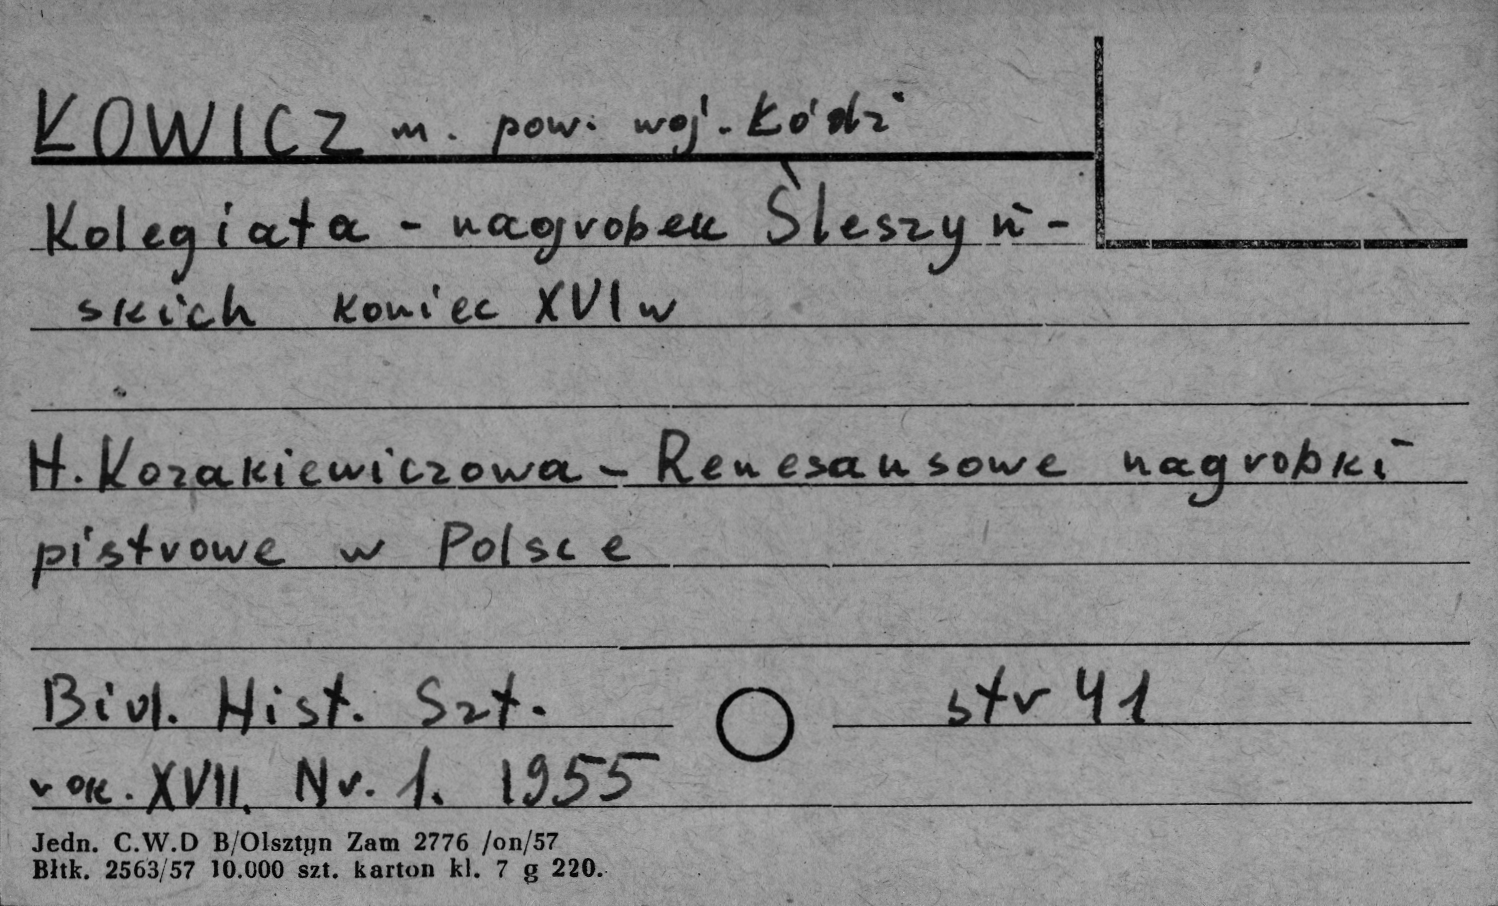 ŁOWICZ m. pow. woj. Łódź
Kolegiata - nagrobek Śleszyń-
skich koniec XVI w
H. Kozakiewiczowa - Renesansowe nagrobki
pistrowe w Polsce
Biul. Hist. Szt. str 41
rok. XVII. Nr. 1. 1955
Jedn. C.W.D B/Olsztyn Zam 2776 /on/57
Błtk. 2563/57 10.000 szt. karton kl. 7 g 220.